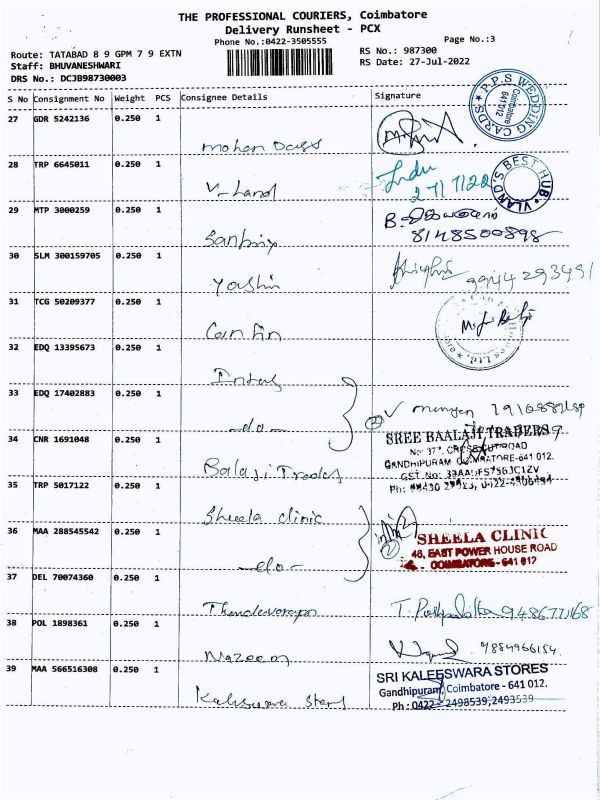 THE PROFESSIONAL COURIERS, Coimbatore
Delivery Runsheet - PCX
Phone No.:0422-3505555
Page No.:3
Route: TATABAD 8 9 GPM 7 9 EXTN
RS No.: 987300
Staff: BHUVANESHWARI
RS Date: 27-Jul-2022
DRS No.: DCJB98730003
S No Consignment No Weight PCS Consignee Details Signature
P.P.S WEDDING CARDS
Coimbatore
641012
27 GDR 5242136 0.250 1
Mohan Dass
28 TRP 6645011 0.250 1
V-Land
Indu
27/7/22
VLAND'S BEST HUB
29 MTP 3000259 0.250 1
8148500898
30 SLM 300159705 0.250 1
Yashin
9944293491
31 TCG 50209377 0.250 1
Can fin
32 EDQ 13395673 0.250 1
33 EDQ 17402883 0.250 1
-do-
34 CNR 1691048 0.250 1
Balaji Traders
SREE BAALAJI TRADERS
GANDHIPURAM COIMBATORE-641 012.
35 TRP 5017122 0.250 1
Sheela clinic
36 MAA 288545542 0.250 1
-do-
SHEELA CLINIC
48, EAST POWER HOUSE ROAD
COIMBATORE - 641 012
37 DEL 70074360 0.250 1
38 POL 1898361 0.250 1
Nazeem
9884966154
39 MAA 566516308 0.250 1
SRI KALEESWARA STORES
Gandhipuram, Coimbatore - 641 012.
Ph : 0422 - 2498539, 2493539